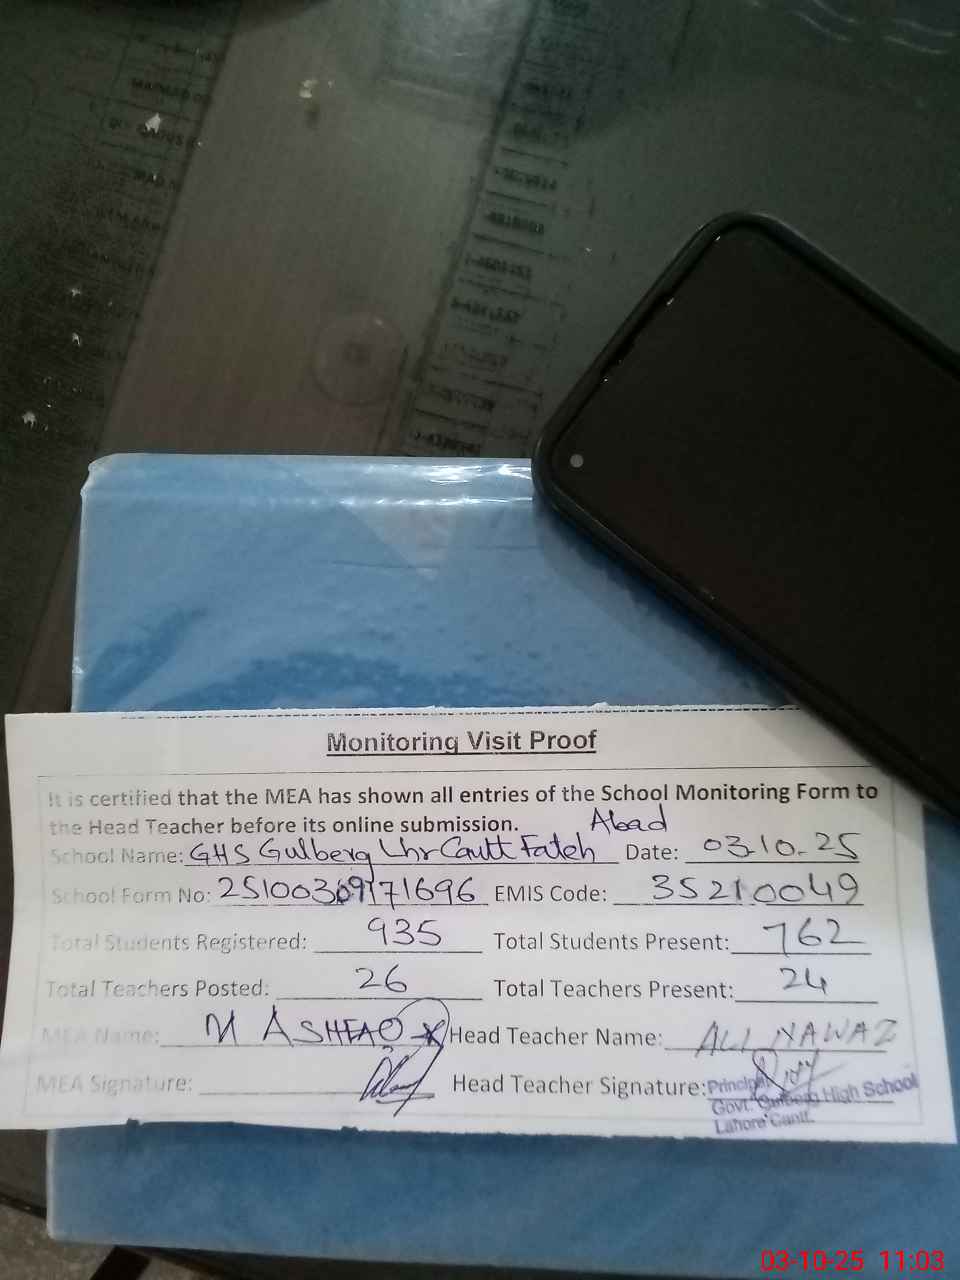 Monitoring Visit Proof
It is certified that the MEA has shown all entries of the School Monitoring Form to
the Head Teacher before its online submission.
Abad
School Name: GHS Gulberg Lhr Cantt Fateh Date: 03.10.25
School Form No: 25100309171696 EMIS Code: 35210049
Total Students Registered: 935 Total Students Present: 762
Total Teachers Posted: 26 Total Teachers Present: 24
MEA Name: M ASHFAQ Head Teacher Name: ALI NAWAZ
MEA Signature: Head Teacher Signature:
Principal
Govt. Gulberg High School
Lahore Cantt.
03-10-25 11:03